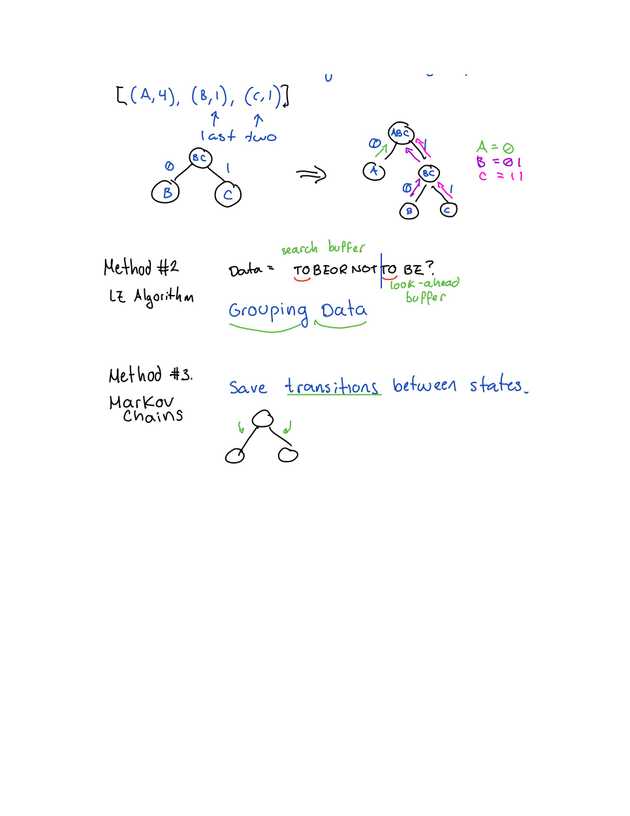 [(A,4), (B,1), (C,1)]
last two
BC
0
1
B
C
ABC
0
1
A
BC
0
1
B
C
A = 0
B = 01
C = 11
search buffer
Method #2
Data = TOBEORNOTTO BE?
LZ Algorithm
look-ahead
buffer
Grouping Data
Method #3.
Save transitions between states.
Markov
Chains